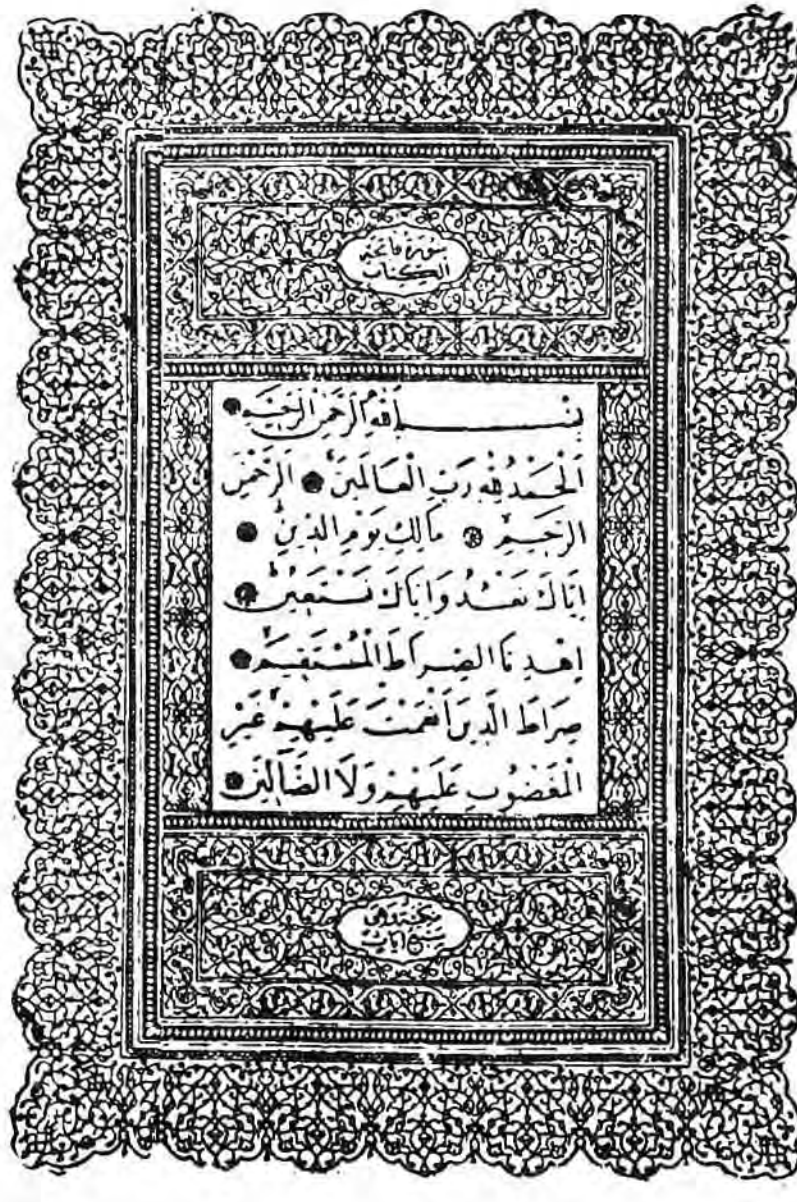 سورة فاتحة
الكتاب
بِسْمِ اللهِ الرَّحْمٰنِ الرَّحِيمِ
اَلْحَمْدُ لِلّٰهِ رَبِّ الْعَالَمِينَۙ اَلرَّحْمٰنِ
الرَّحِيمِۙ مَالِكِ يَوْمِ الدِّينِۜ
اِيَّاكَ نَعْبُدُ وَاِيَّاكَ نَسْتَعِينُۜ
اِهْدِنَا الصِّرَاطَ الْمُسْتَقِيمَۙ
صِرَاطَ الَّذِينَ اَنْعَمْتَ عَلَيْهِمْۙ غَيْرِ
الْمَغْضُوبِ عَلَيْهِمْ وَلَا الضَّٓالِّينَ
مكية وهى
سبع ايات